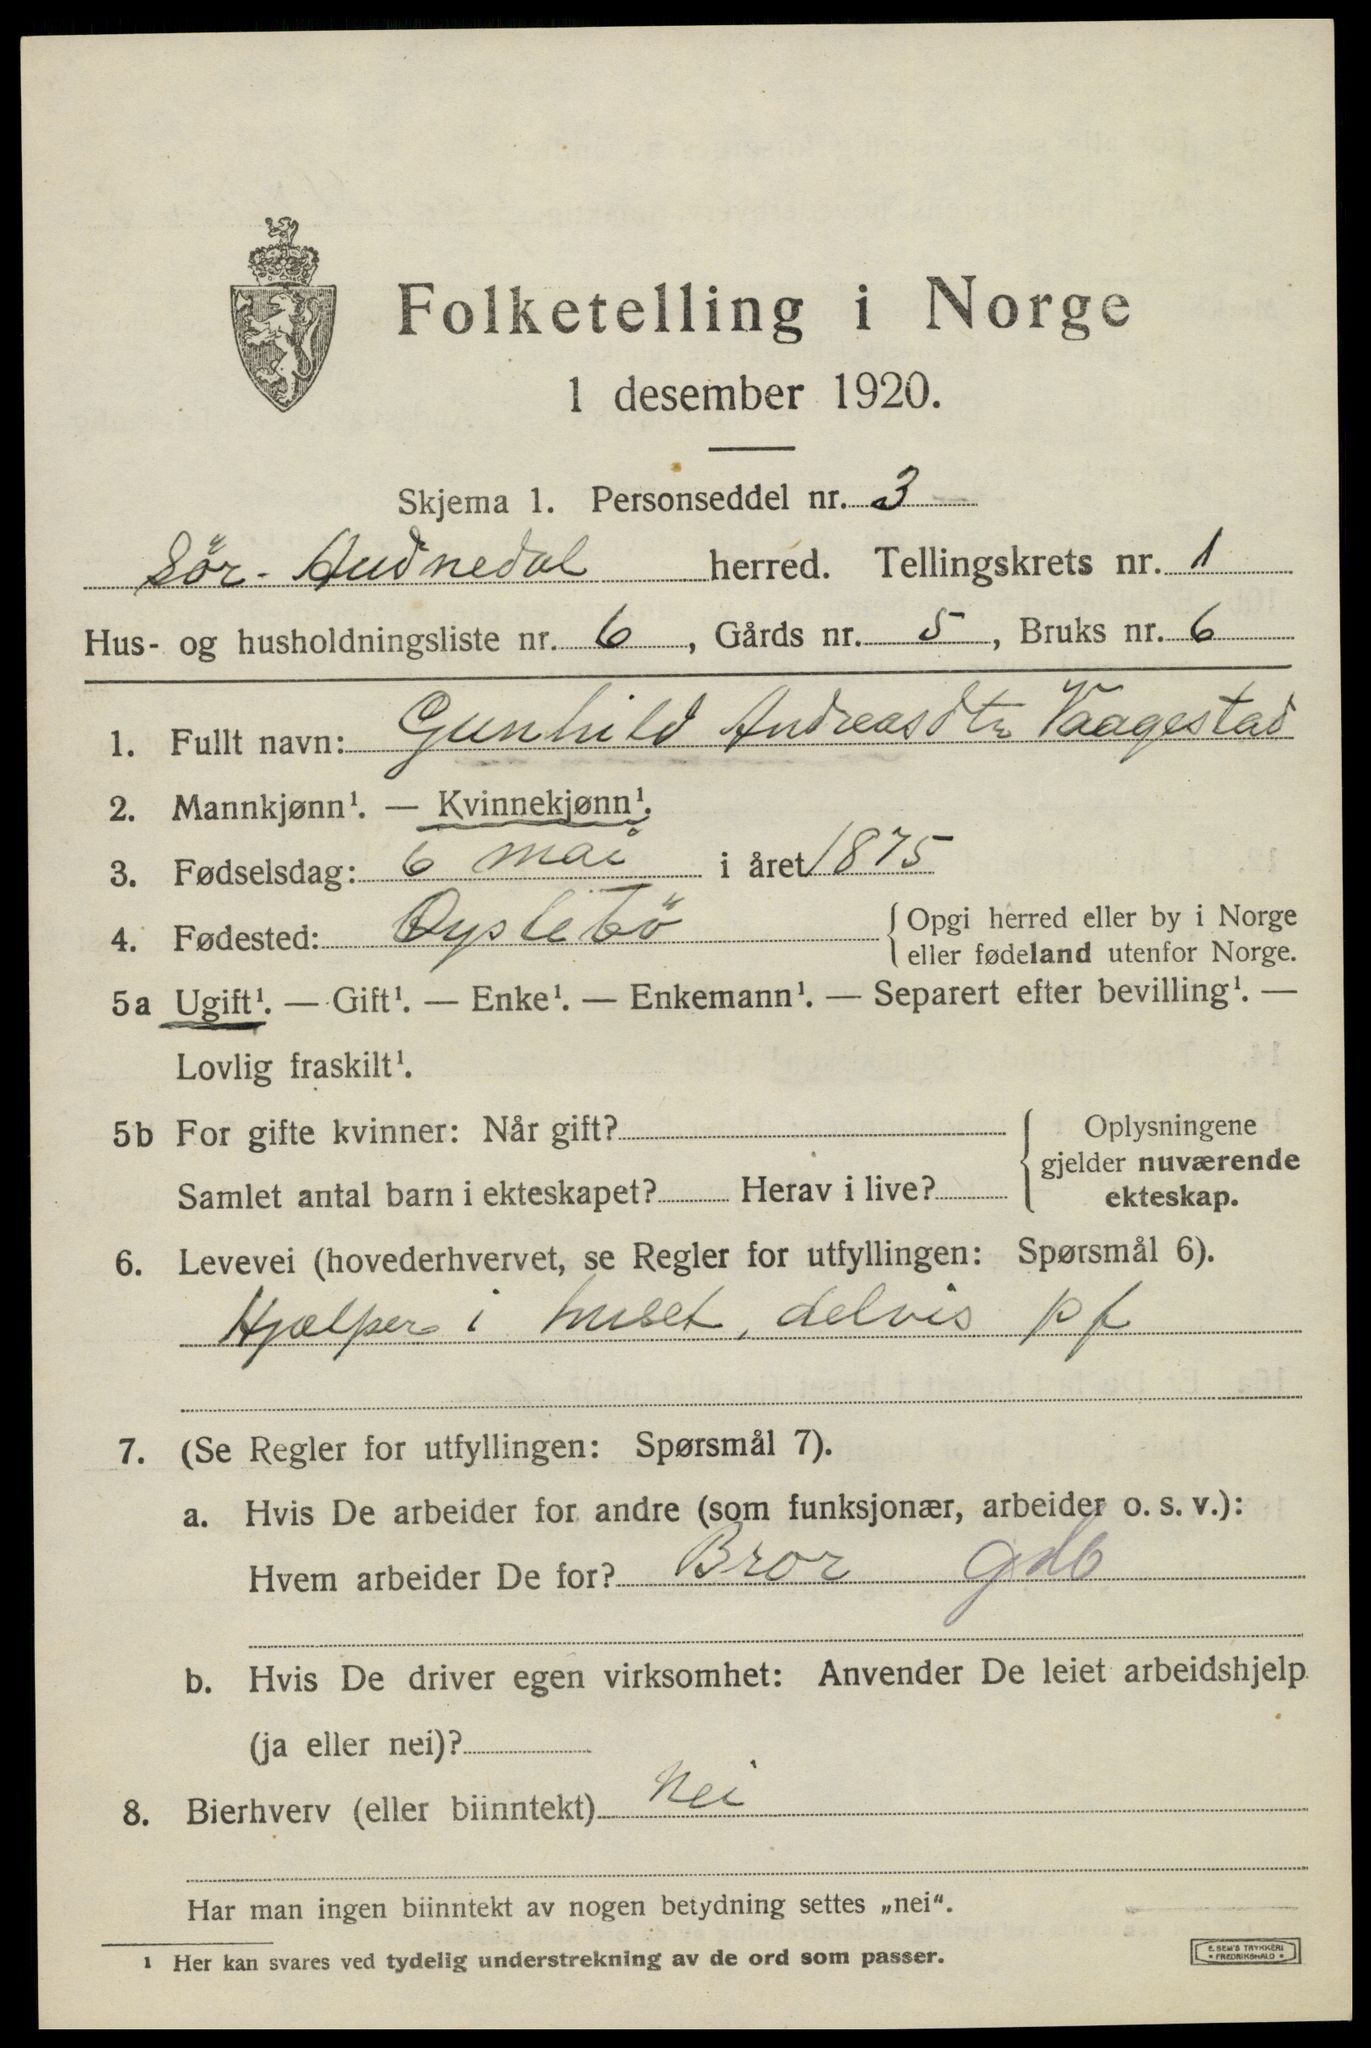 Folketelling i Norge
1 desember 1920.
Skjema 1. Personseddel nr. 3
Sör-Audnedal herred. Tellingskrets nr. 1
Hus- og husholdningsliste nr. 6, Gårds nr. 5, Bruks nr. 6
1. Fullt navn: Gunhild Andreasdtr Vaagestad
2. Mannkjønn¹. — Kvinnekjønn¹.
3. Fødselsdag: 6 mai i året 1875
4. Fødested: Öyslebö { Opgi herred eller by i Norge
eller fødeland utenfor Norge.
5a Ugift¹. — Gift¹. — Enke¹. — Enkemann¹. — Separert efter bevilling¹. —
Lovlig fraskilt¹.
5b For gifte kvinner: Når gift? { Oplysningene
gjelder nuværende
Samlet antal barn i ekteskapet? Herav i live? ekteskap.
6. Levevei (hovederhvervet, se Regler for utfyllingen: Spørsmål 6).
Hjælper i huset, delvis pf
7. (Se Regler for utfyllingen: Spørsmål 7).
a. Hvis De arbeider for andre (som funksjonær, arbeider o. s. v.):
Hvem arbeider De for? Bror gdb
b. Hvis De driver egen virksomhet: Anvender De leiet arbeidshjelp
(ja eller nei)?
8. Bierhverv (eller biinntekt) Nei
Har man ingen biinntekt av nogen betydning settes „nei“.
¹ Her kan svares ved tydelig understrekning av de ord som passer.
E. SEM'S TRYKKERI
• FREDRIKSHALD •